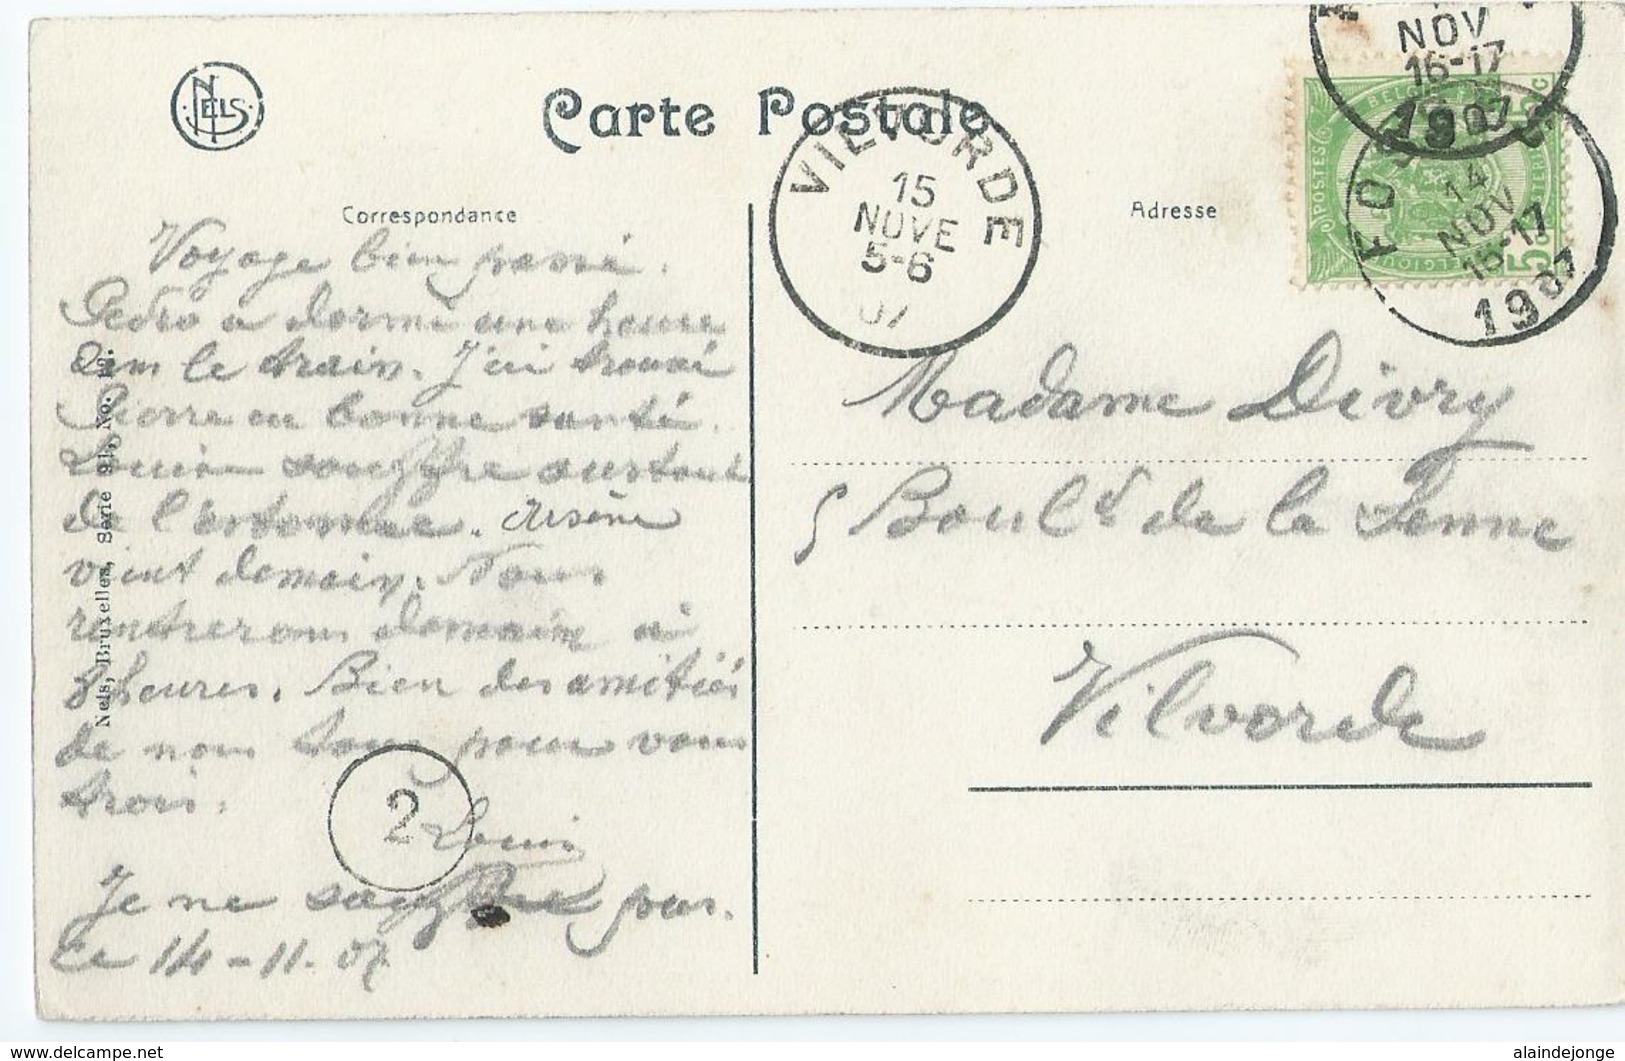 NELS
Carte Postale
Correspondance
Adresse
NOV
16-17
1907
FOS
14
NOV
16-17
1907
POSTES
BELGIQUE
5c
5c
VILVORDE
15
NOVE
5-6
07
Voyage bien passé.
Pedro a dormi une heure
dans le train. J'ai trouvé
Pierre en bonne santé.
Louisa souffre surtout
de l'estomac. Arsène
vient demain. Nous
rentrerons demain à
8 heures. Bien des amitiés
de nous tous pour vous
trois.
Louis
Je ne souffre pas.
Ce 14-11.07
2
Nels, Bruxelles, Série 91, No. 12.
Madame Divry
5 Boul.d de la Senne
Vilvorde
alaindejonge